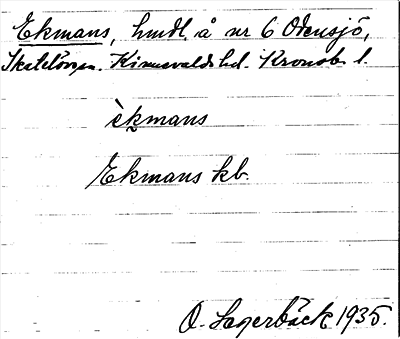 Ekmans, hmdl. å nr 6 Odensjö,
Skatelövs sn. Kinnevalds hd. Kronob. l.
èkmans
Ekmans kb.
O. Lagerbäck 1935.